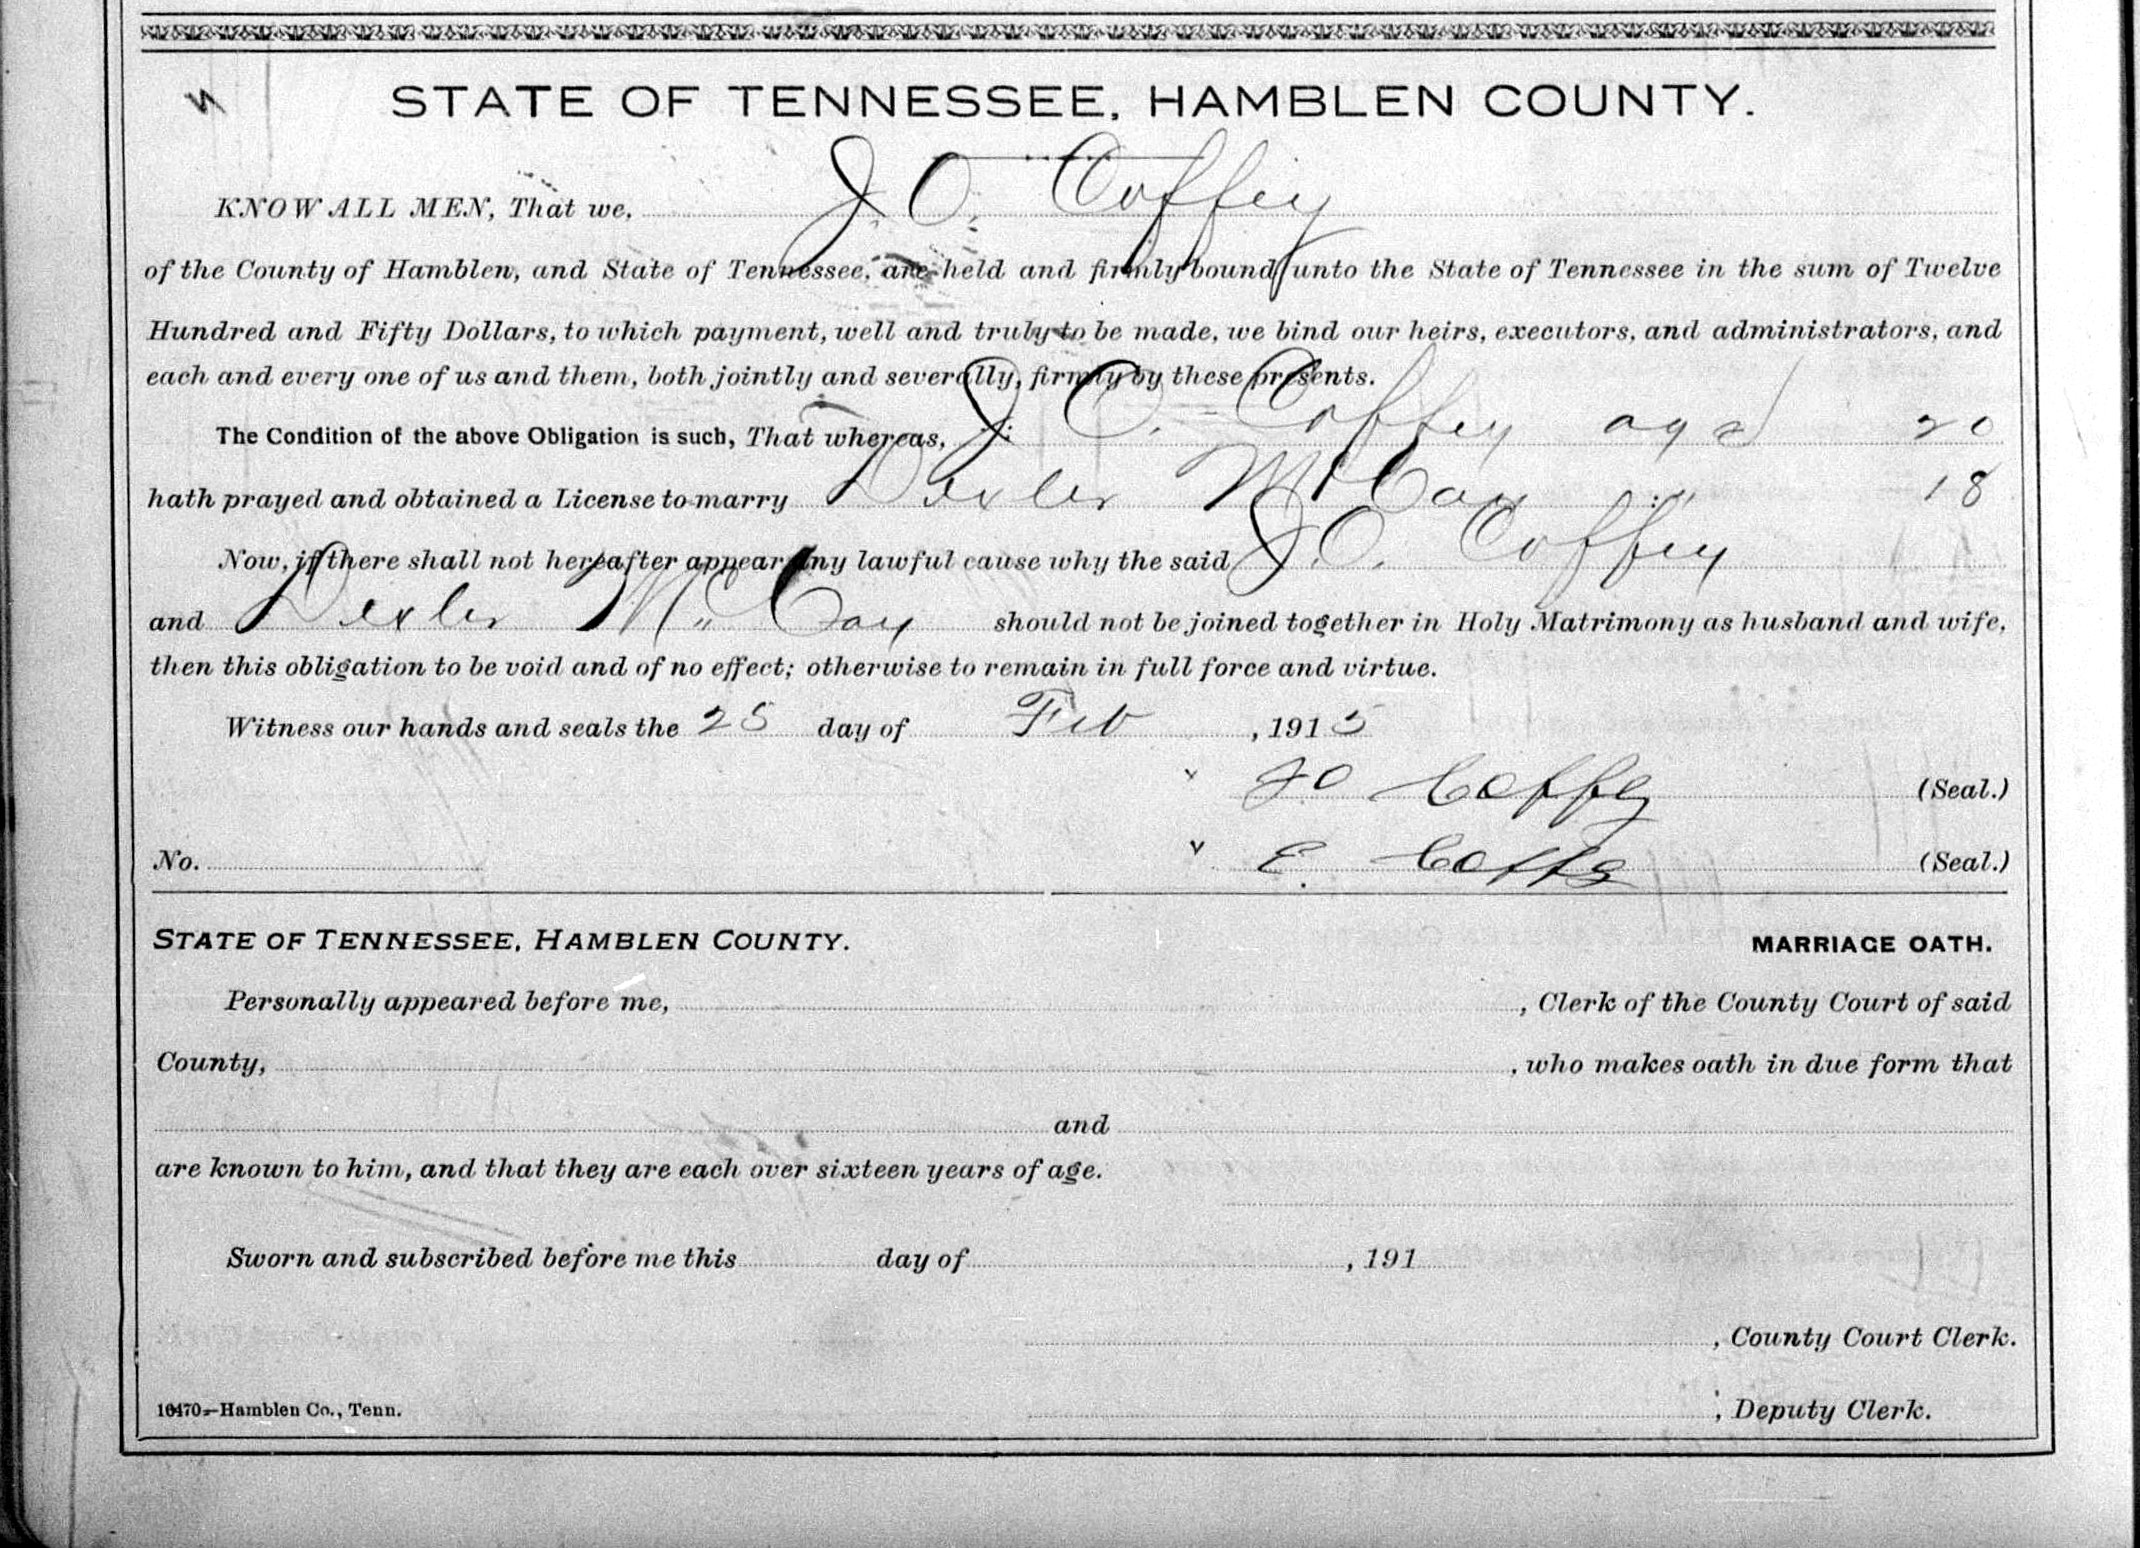 STATE OF TENNESSEE, HAMBLEN COUNTY.
KNOW ALL MEN, That we, J. O. Coffey
of the County of Hamblen, and State of Tennessee, are held and firmly bound unto the State of Tennessee in the sum of Twelve
Hundred and Fifty Dollars, to which payment, well and truly to be made, we bind our heirs, executors, and administrators, and
each and every one of us and them, both jointly and severally, firmly by these presents.
The Condition of the above Obligation is such, That whereas, J. O. Coffey aged 20
hath prayed and obtained a License to marry Dexter McCoy " 18
Now, if there shall not hereafter appear any lawful cause why the said J. O. Coffey
and Dexter McCoy should not be joined together in Holy Matrimony as husband and wife,
then this obligation to be void and of no effect; otherwise to remain in full force and virtue.
Witness our hands and seals the 25 day of Feb , 1915
J O Coffey (Seal.)
No. E. (Seal.)
STATE OF TENNESSEE, HAMBLEN COUNTY. MARRIAGE OATH.
Personally appeared before me, , Clerk of the County Court of said
County, , who makes oath in due form that
and
are known to him, and that they are each over sixteen years of age.
Sworn and subscribed before me this day of , 191
, County Court Clerk.
10470—Hamblen Co., Tenn. , Deputy Clerk.